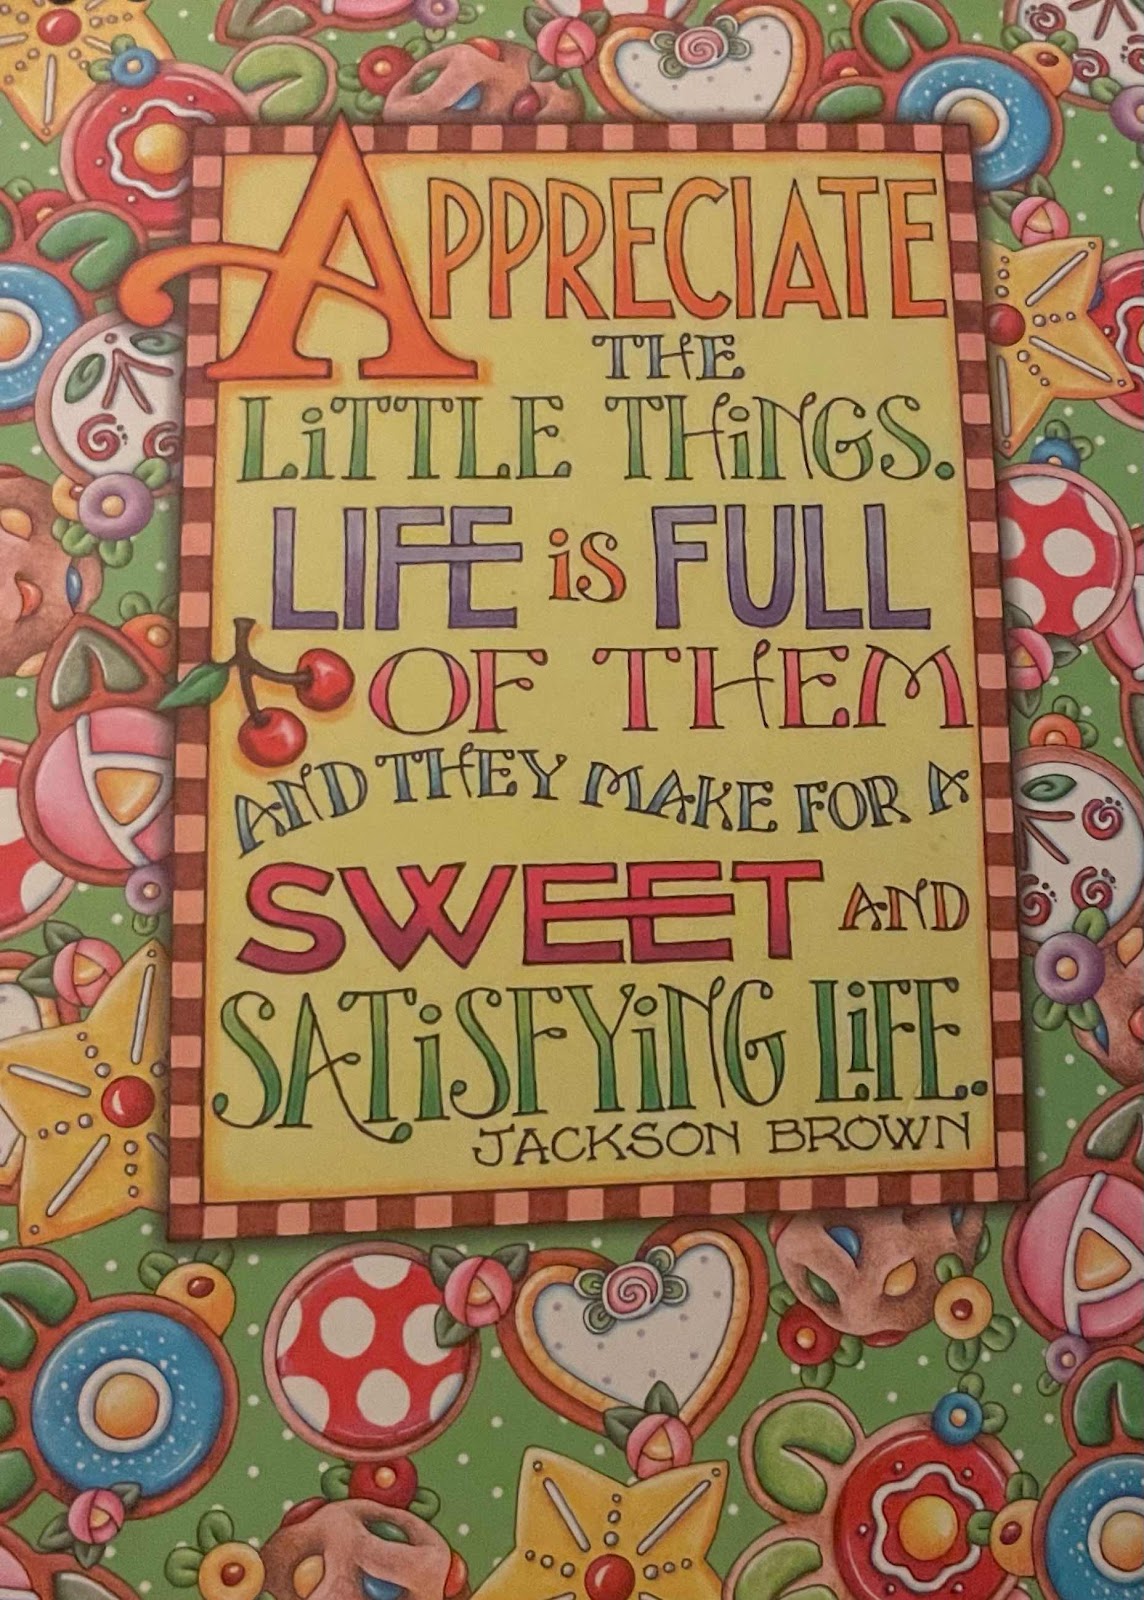 APPRECIATE
THE
LiTTLE THiNGS.
LIFE is FULL
OF THEM
AND THEY MAKE FOR A
SWEET AND
SATiSFYiNG LiFE.
JACKSON BROWN